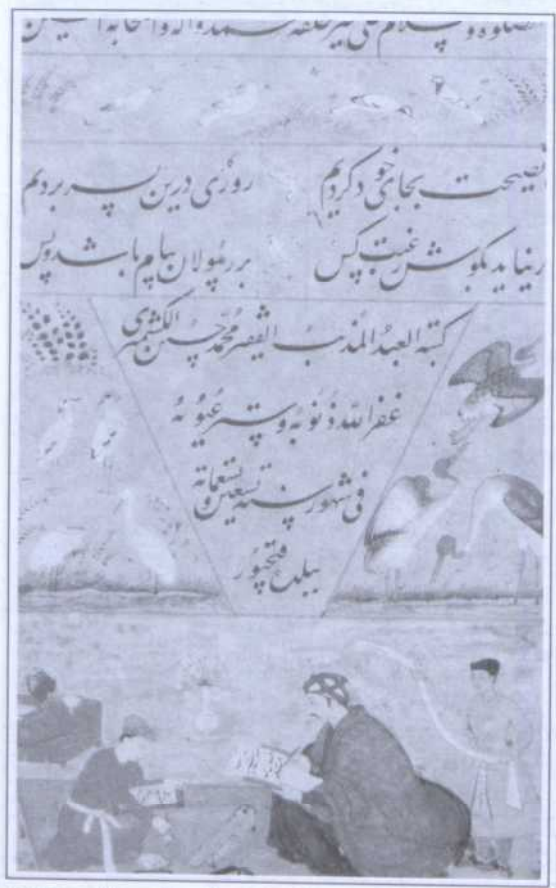 صلوة و سلام علی خیر خلقه محمد واله واصحابه اجمعین
نصیحت بجای خود کردیم روزی درین بسر بردیم
رنیاید بکوش رغبت کس بر رسولان پیام باشد و بس
کتبه العبد المذنب الفقیر محمد حسین الکشمیری
غفر الله ذنوبه وستر عیوبه
فی شهور سنه تسعین و تسعمایة
ببلده فتحپور